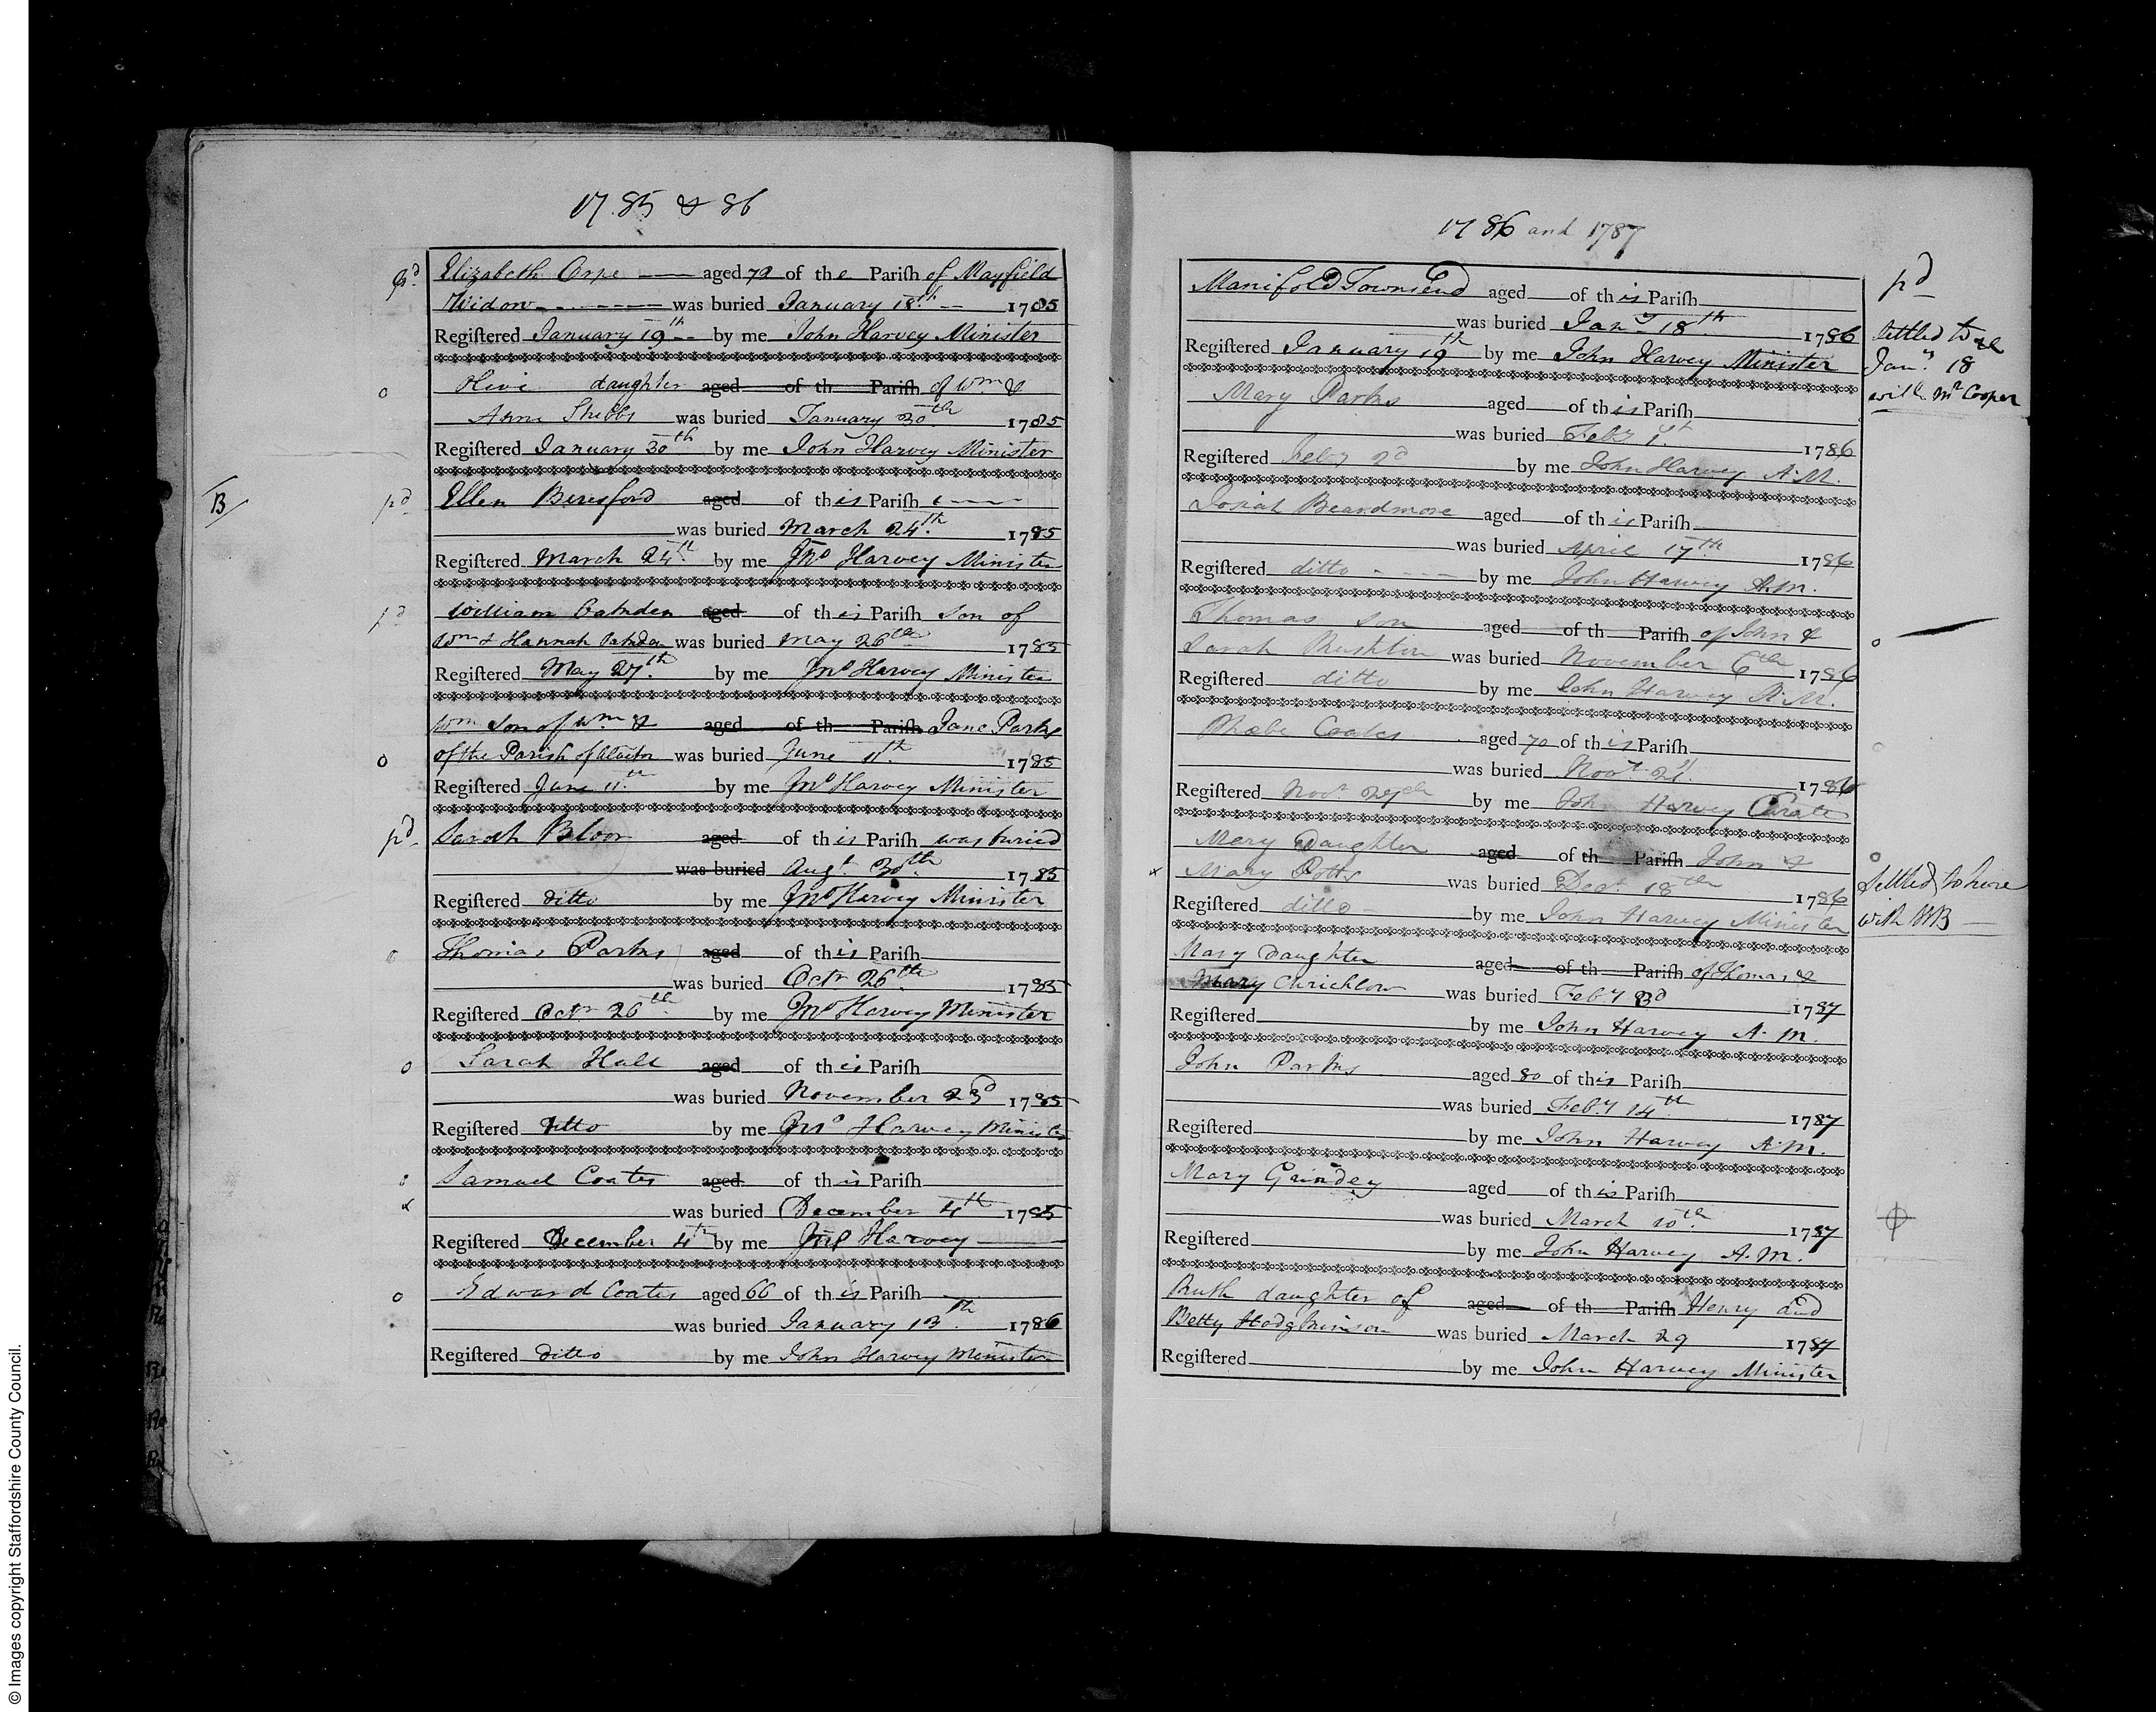 1785 & 86
pd. Elizabeth Orpe aged 72 of the Parish of Mayfield
Widow was buried January 18th 1785
Registered January 19th by me John Harvey Minister
o daughter aged of th Parish of Wm &
Anne Stubbs was buried January 30th 1785
Registered January 30th by me John Harvey Minister
B pd Ellen Beresford aged of this Parish
was buried March 24th. 1785
Registered March 24th by me Jno Harvey Minister
pd William aged of this Parish Son of
Wm & Hannah was buried May 26th 1785
Registered May 27th. by me Jno Harvey Minister
Wm Son of Wm & aged of th Parish Jane Parks
o of the Parish of was buried June 11th. 1785
Registered June 11th by me Jno Harvey Minister
pd. Sarah Bloor aged of this Parish was buried
was buried Augt 30th. 1785
Registered ditto by me Jno Harvey Minister
o Thomas Parks aged of this Parish
was buried Octr 26th. 1785
Registered Octr 26th. by me Jno Harvey Minister
o Sarah Hall aged of this Parish
was buried November 23d 1785
Registered ditto by me Jno Harvey Minister
Samuel Coates aged of this Parish
x was buried December 4th 1785
Registered December 4th by me Jno Harvey
o Edward Coates aged 66 of this Parish
was buried January 13th. 1786
Registered ditto by me John Harvey Minister
1786 and 1787
Manifold Townsend aged of this Parish pd
was buried Jany 18th 1786 Settled to
Registered January 19th by me John Harvey Minister Jany 18
Mary Parks aged of this Parish with Mr Cooper
was buried Feby 1st 1786
Registered Feby 2d by me John Harvey A.M.
Josiah Beardmore aged of this Parish
was buried April 17th 1786
Registered ditto by me John Harvey A.M.
Thomas Son aged of th Parish of John & o
Sarah Rushton was buried November 6th 1786
Registered ditto by me John Harvey A.M.
Phoebe Coates aged 70 of this Parish o
was buried Novr 1786
Registered Novr by me John Harvey Curate
Mary Daughter aged of th Parish John & o
x Mary Potts was buried Decr. 18th 1786 Settled to here
Registered ditto by me John Harvey Minister with WB
Mary Daughter aged of th Parish of Thomas &
Mary Chrichlow was buried Feby 3d 1787
Registered by me John Harvey A.M.
John Parks aged 80 of this Parish
was buried Feby 14th 1787
Registered by me John Harvey A.M.
Mary Grindey aged of this Parish
was buried March 10th. 1787
Registered by me John Harvey A.M.
Ruth daughter of aged of th Parish Henry and
Betty Hodgkinson was buried March 29 1787
Registered by me John Harvey Minister
© Images copyright Staffordshire County Council.